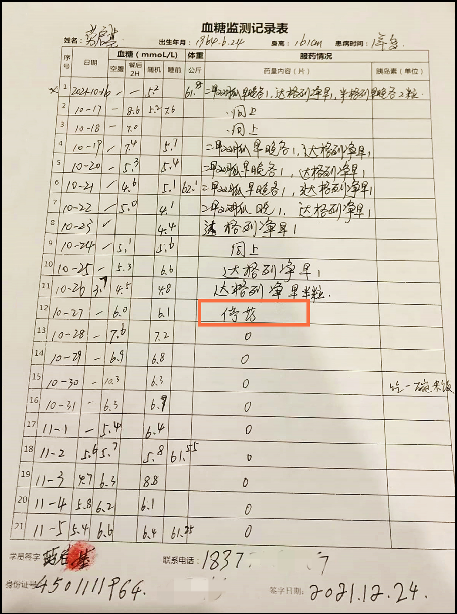 血糖监测记录表
姓名: 出生年月: 1964.6.24 身高: 161cm 患病时间:
序号 日期 血糖(mmoL/L) 体重 服药情况
空腹 餐后2H 随机 睡前 公斤 药量内容(片) 胰岛素(单位)
1 2021-10-16 - 5.2 61.8 二甲双胍早晚各1, 达格列净早1,
2 10-17 - 8.6 5.2 7.6 同上
3 10-18 - 7.0 同上
4 10-19 - 7.4 5.1 二甲双胍早晚各1, 达格列净早1
5 10-20 - 5.3 5.4 二甲双胍早晚各1, 达格列净早1
6 10-21 - 4.6 5.1 62. 二甲双胍早晚各1, 达格列净早1
7 10-22 - 5.0 4.1 二甲双胍晚1, 达格列净早1
8 10-23 4.4 达格列净早1
9 10-24 - 5.1 5.6 同上
10 10-25 - 5.3 6.6 达格列净早1
11 10-26 4.5 4.8 达格列净早半粒.
12 10-27 - 6.0 6.1 停药
13 10-28 - 7.6 7.2 0
14 10-29 - 6.9 6.8 0
15 10-30 - 10.3 6.3 0 吃一碗米饭
16 10-31 - 6.3 6.9 0
17 11-1 - 5.4 6.4 0
18 11-2 5.6 5.7 5.8 61.55 0
19 11-3 4.7 6.3 8.8 0
20 11-4 5.8 6.2 6.1 0
21 11-5 5.4 6.6 6.4 61.25 0
学员签字 联系电话: 1837 7
身份证号: 4501111964. 签字日期: 2021.12.24.